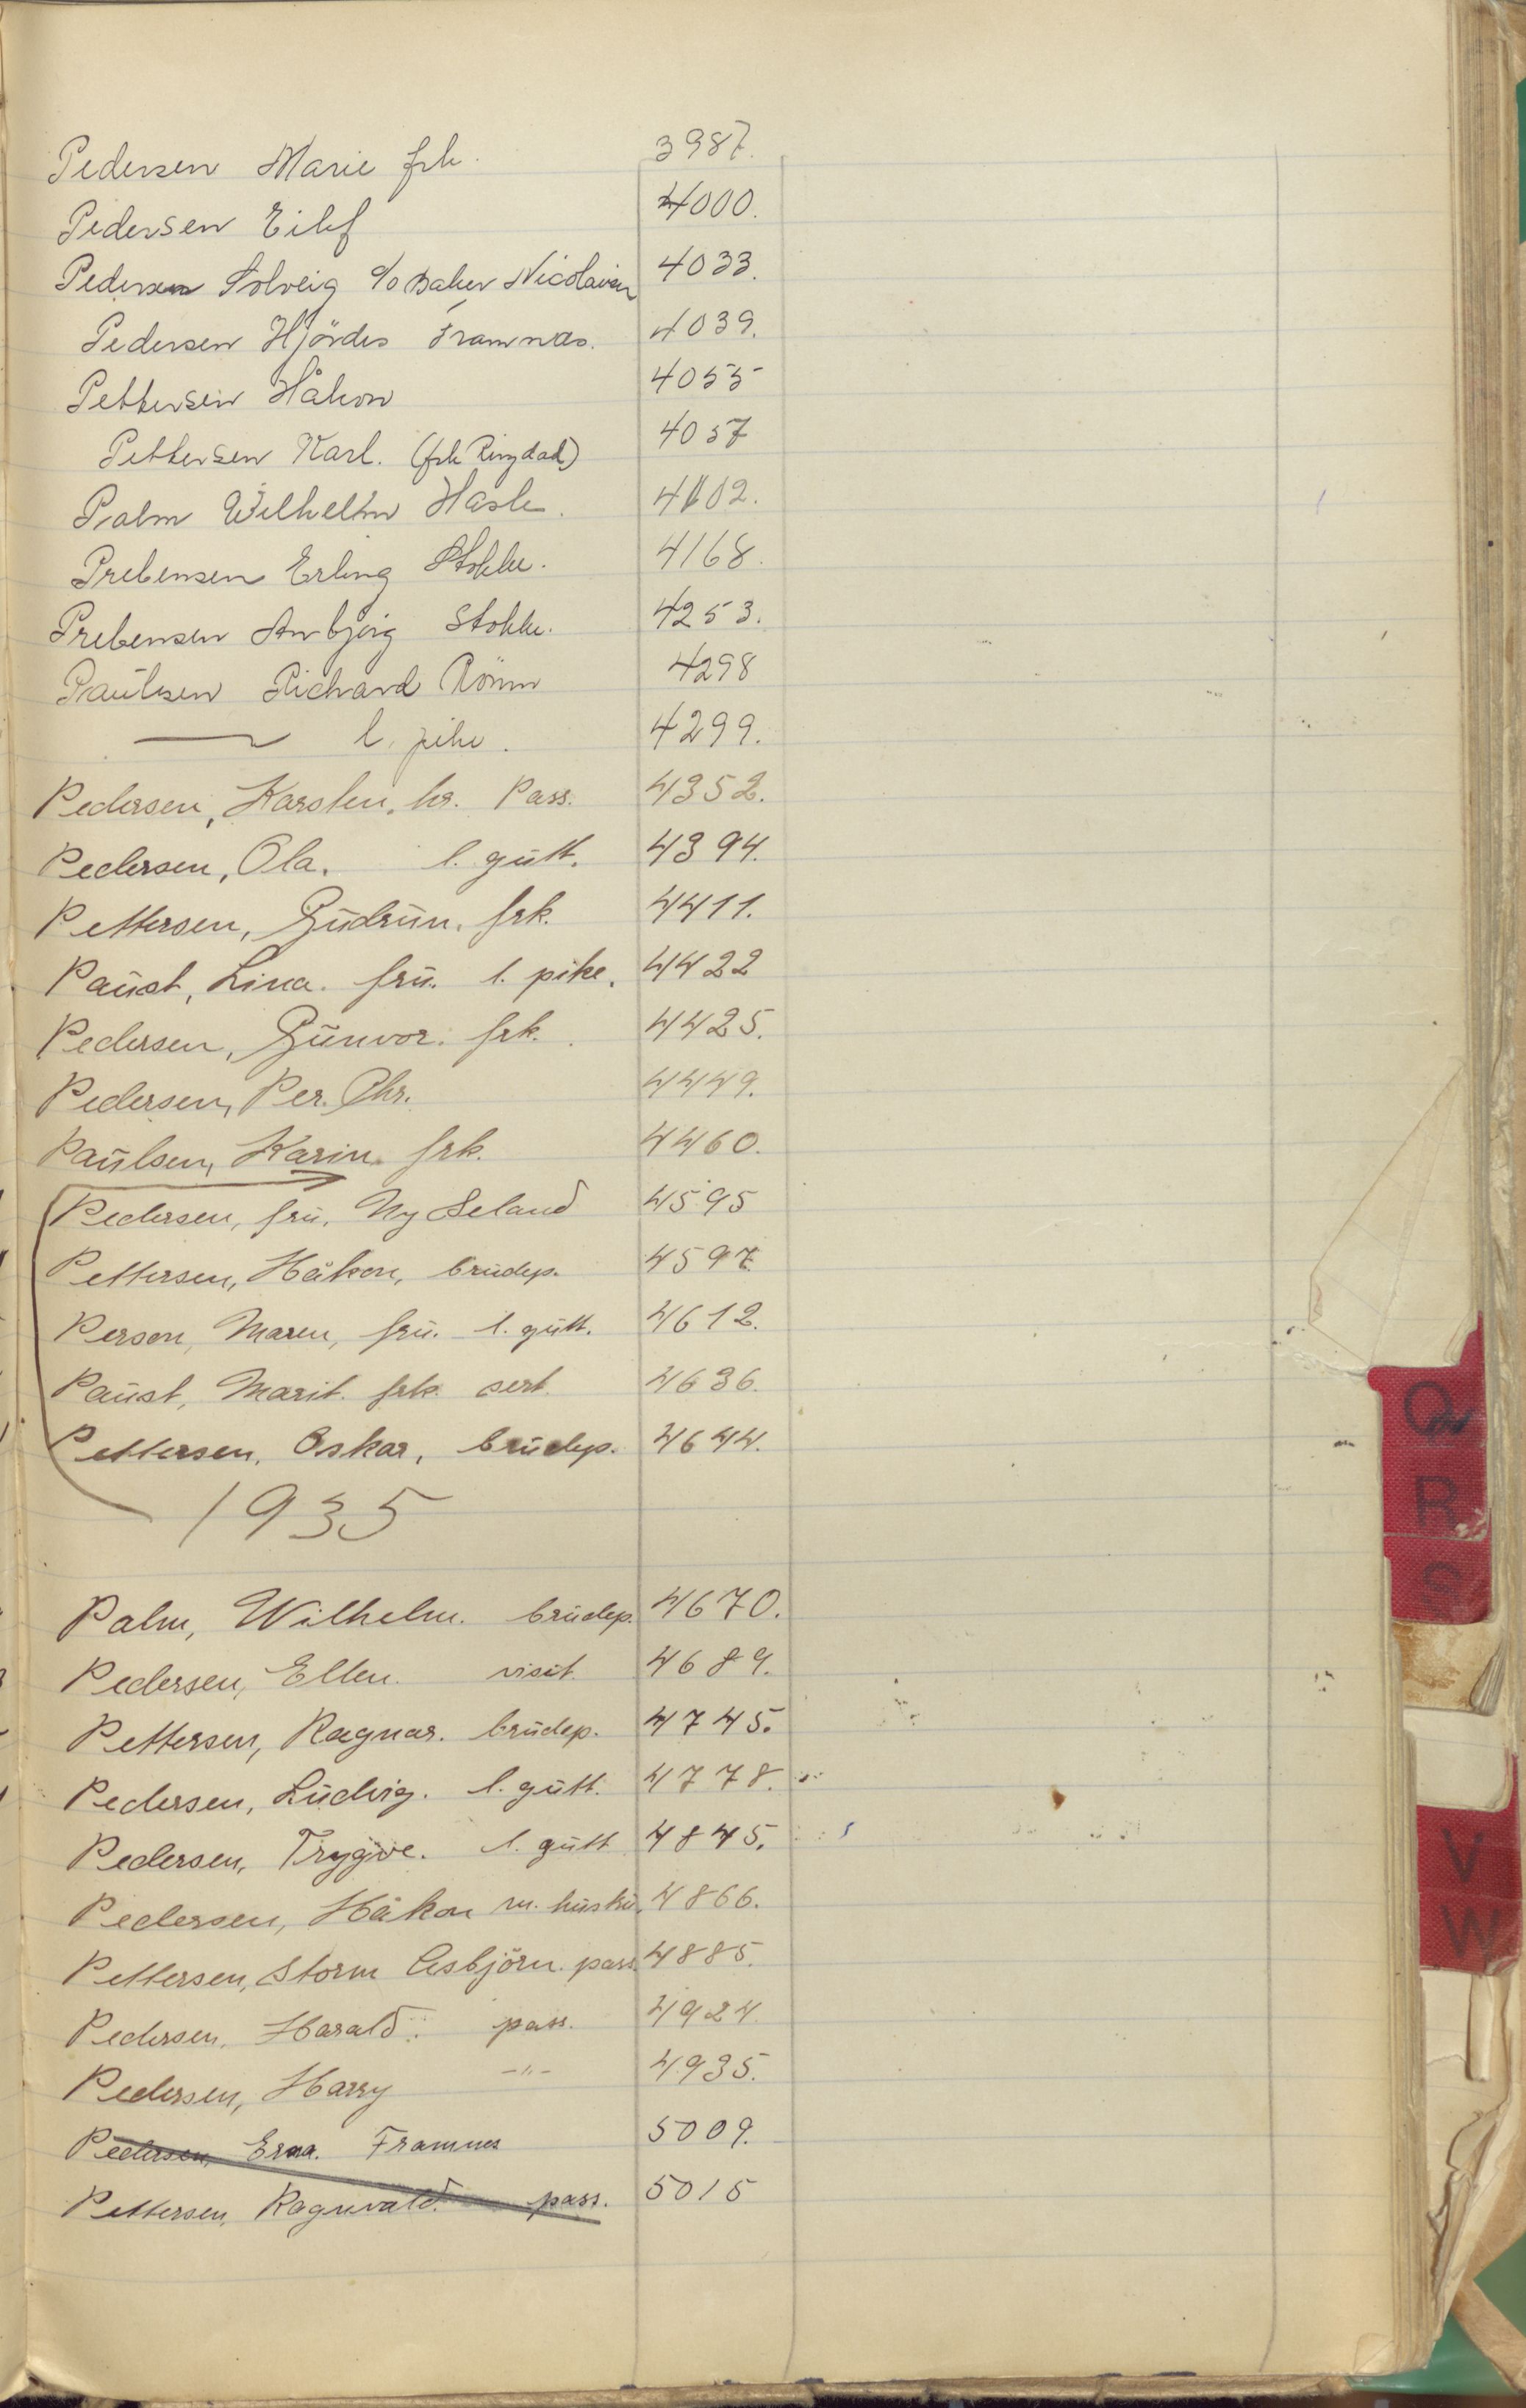 Pedersen Marie frk. 3987.
Pedersen Eilif 4000.
Pedersen Solveig c/o Baker Nicolaisen 4033.
Pedersen Hjördis Framnæs. 4039.
Pettersen Håkon 4055
Pettersen Karl. (frk Ringdad) 4057
Palm Wilhelm Hasle. 4102.
Prebensen Erling Stokke. 4168.
Prebensen Anbjörg Stokke. 4253.
Paulsen Richard Römm 4298
— l. pike. 4299.
Pedersen, Karsten, hr. Pass. 4352.
Pedersen, Ola. l. gutt. 4394.
Pettersen, Gudrun. frk. 4411.
Paust, Lina. fru. l. pike. 4422
Pedersen, Gunvor. frk. 4425.
Pedersen, Per. Chr. 4449.
Paulsen, Karin. frk. 4460.
Pedersen, fru. Ny Seland 4595
Pettersen, Håkon, brudep. 4597
Person, Maren, fru. l. gutt. 4612.
Paust, Marit. frk. sert. 4636.
Pettersen, Oskar, brudep. 4644.
1935
Palm, Wilhelm. brudep. 4670.
Pedersen, Ellen. visit. 4689.
Pettersen, Ragnar. brudep. 4745.
Pedersen, Ludvig. l. gutt. 4778.
Pedersen, Trygve. l. gutt 4845.
Pedersen, Håkon m. hustru. 4866.
Pettersen, Storm Asbjörn. pass. 4885.
Pedersen, Harald. pass. 4924.
Pedersen, Harry -"- 4935.
Pedersen, Erna. Framnes 5009.
Pettersen, Ragnvald. pass. 5015
Q
R
S
V
W